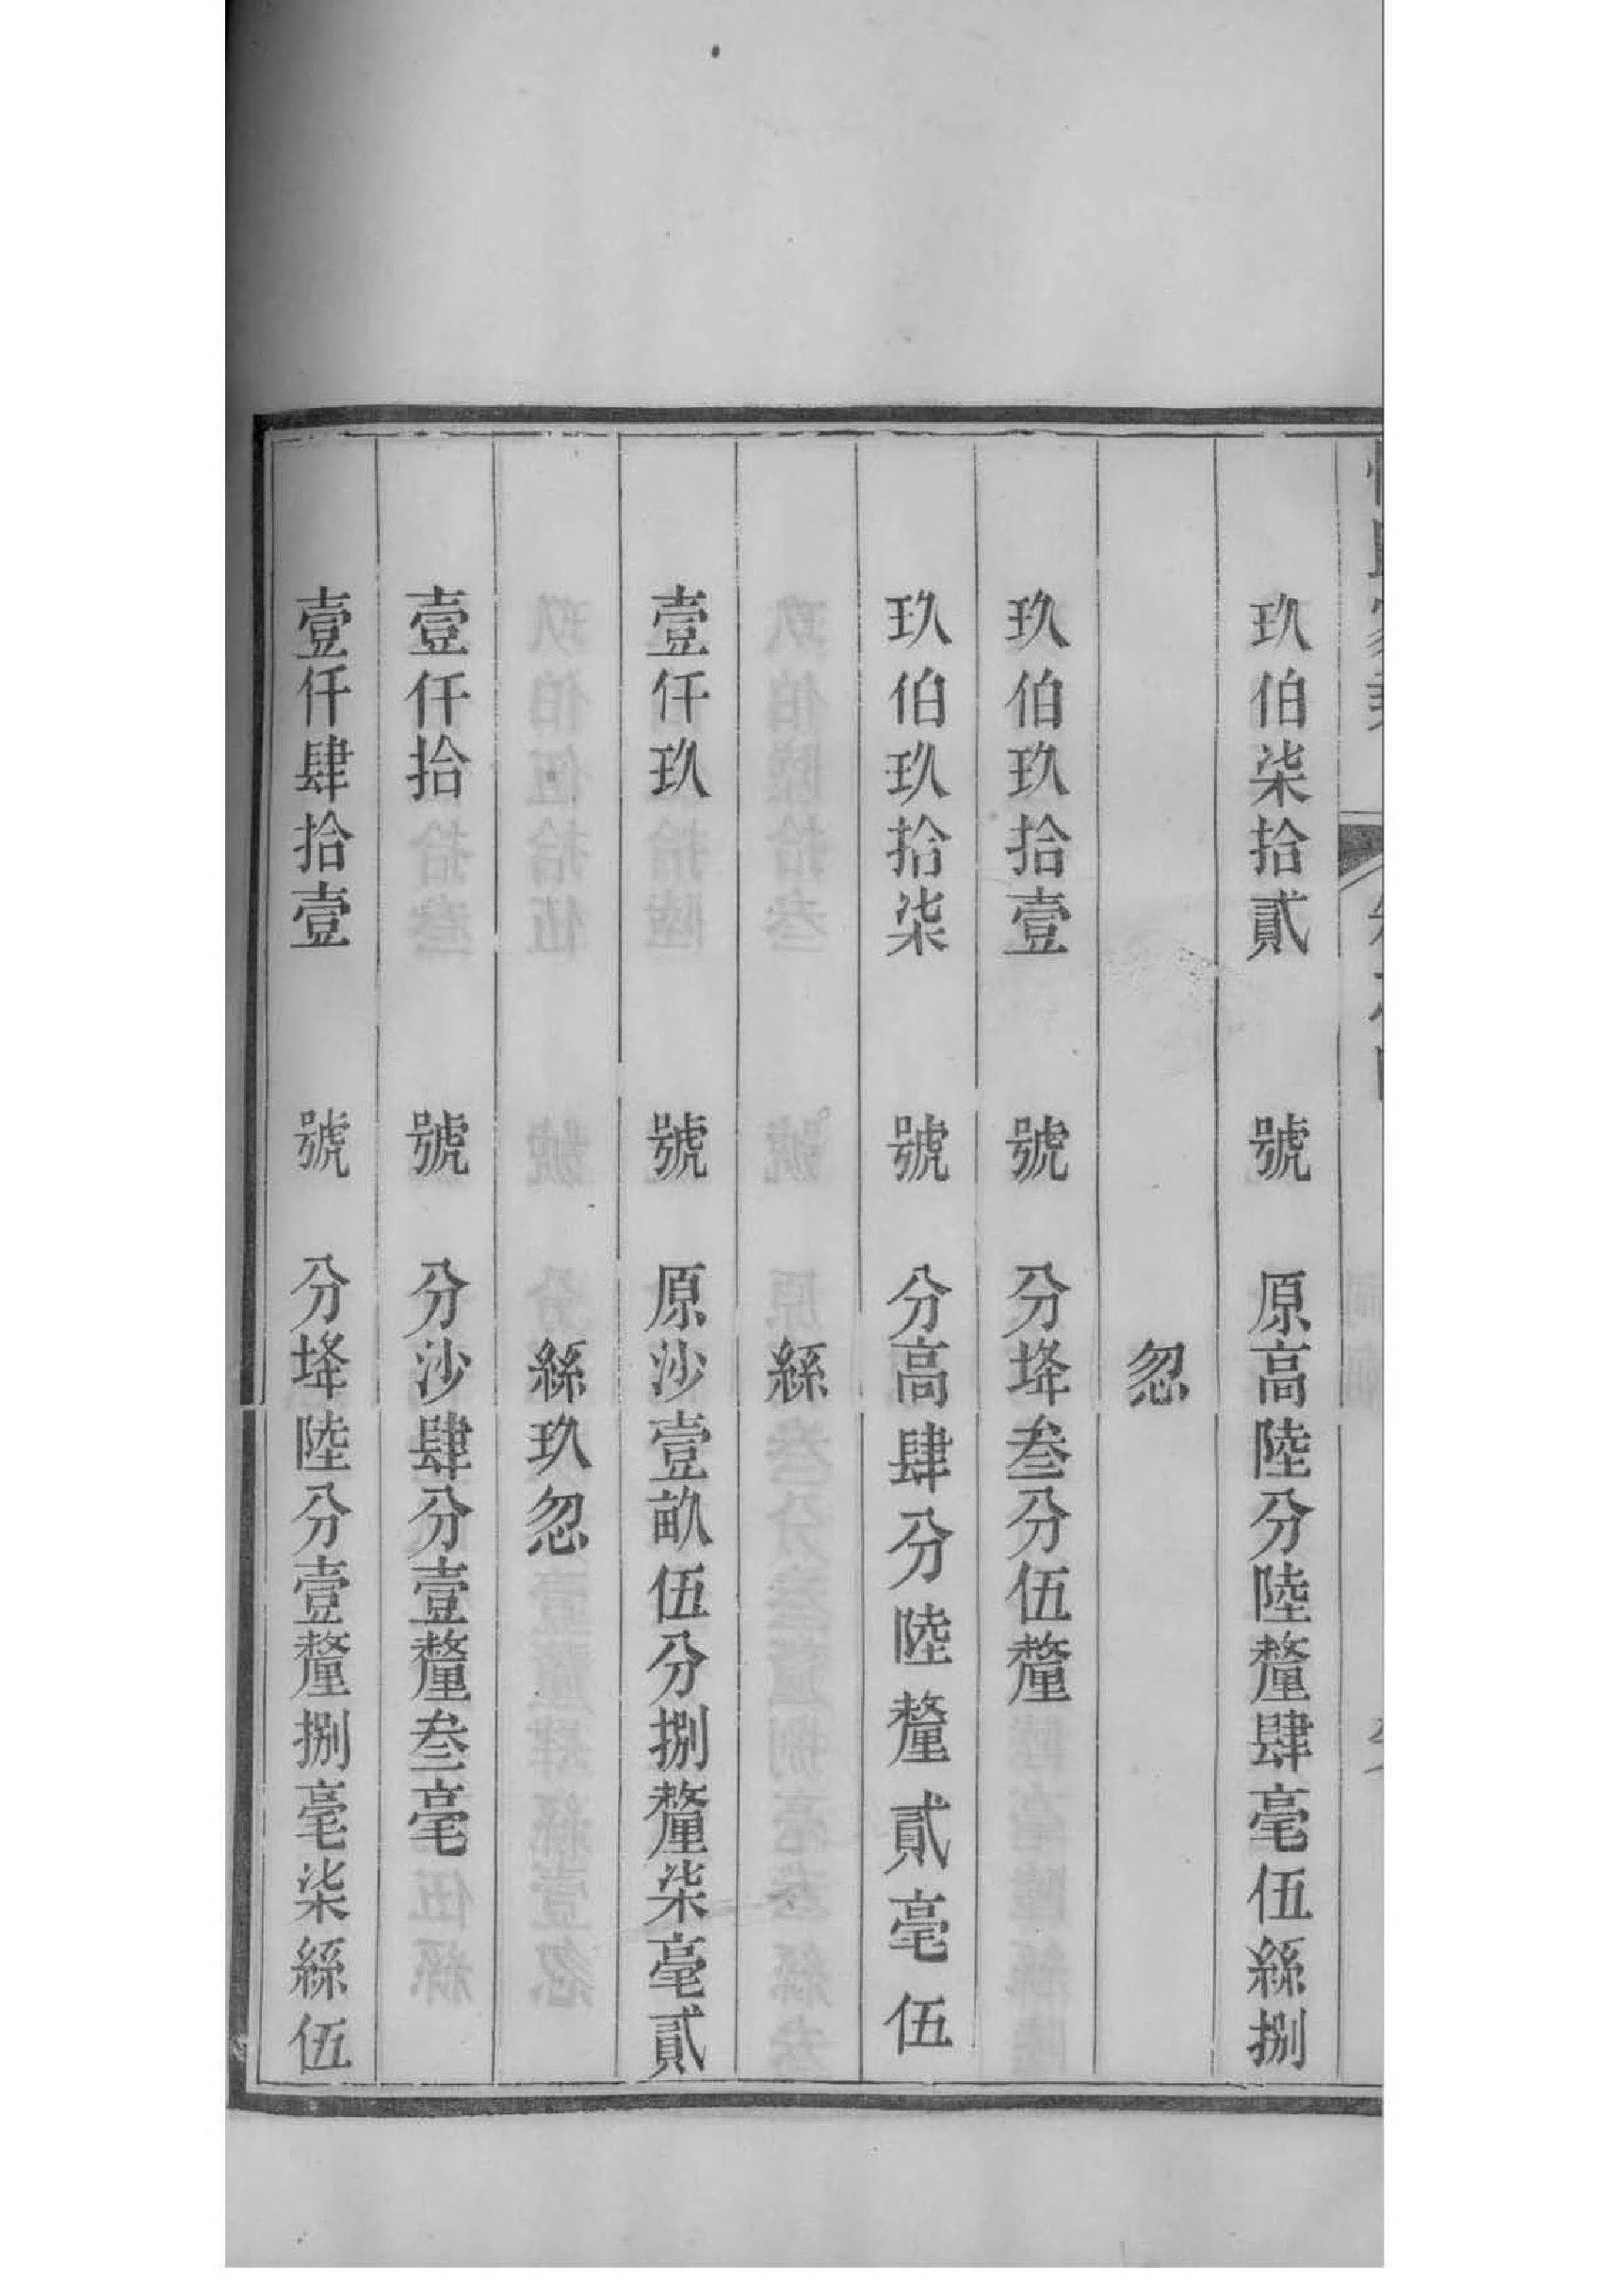 玖伯柒拾貳　號　原高陸分陸釐肆毫伍絲捌
忽
玖伯玖拾壹　號　分埄叁分伍釐
玖伯玖拾柒　號　分高肆分陸釐貳毫伍
絲
壹仟玖　號　原沙壹畝伍分捌釐柒毫貳
絲玖忽
壹仟拾　號　分沙肆分壹釐叁毫
壹仟肆拾壹　號　分埄陸分壹釐捌毫柒絲伍